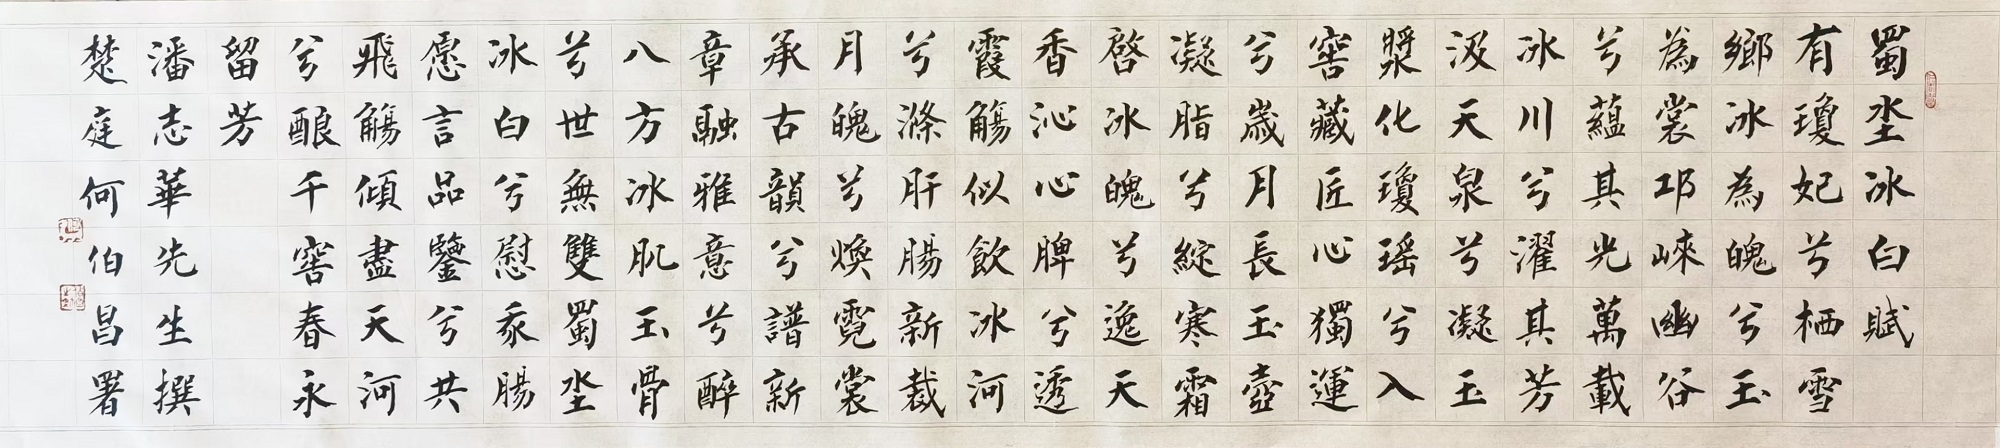 蜀坔冰白賦
有瓊妃兮栖雪
鄉冰為魄兮玉
為裳邛崍幽谷
兮蘊其光萬載
冰川兮濯其芳
汲天泉兮凝玉
漿化瓊瑶兮入
窖藏匠心獨運
兮歲月長玉壺
凝脂兮綻寒霜
啓冰魄兮逸天
香沁心脾兮透
霞觴似飲冰河
兮滌肝腸新裁
月魄兮煥霓裳
承古韻兮譜新
章融雅意兮醉
八方冰肌玉骨
兮世無雙蜀坔
冰白兮慰豖腸
愿言品鑒兮共
飛觴傾盡天河
兮酿千窖春永
留芳
潘志華先生撰
楚庭何伯昌署